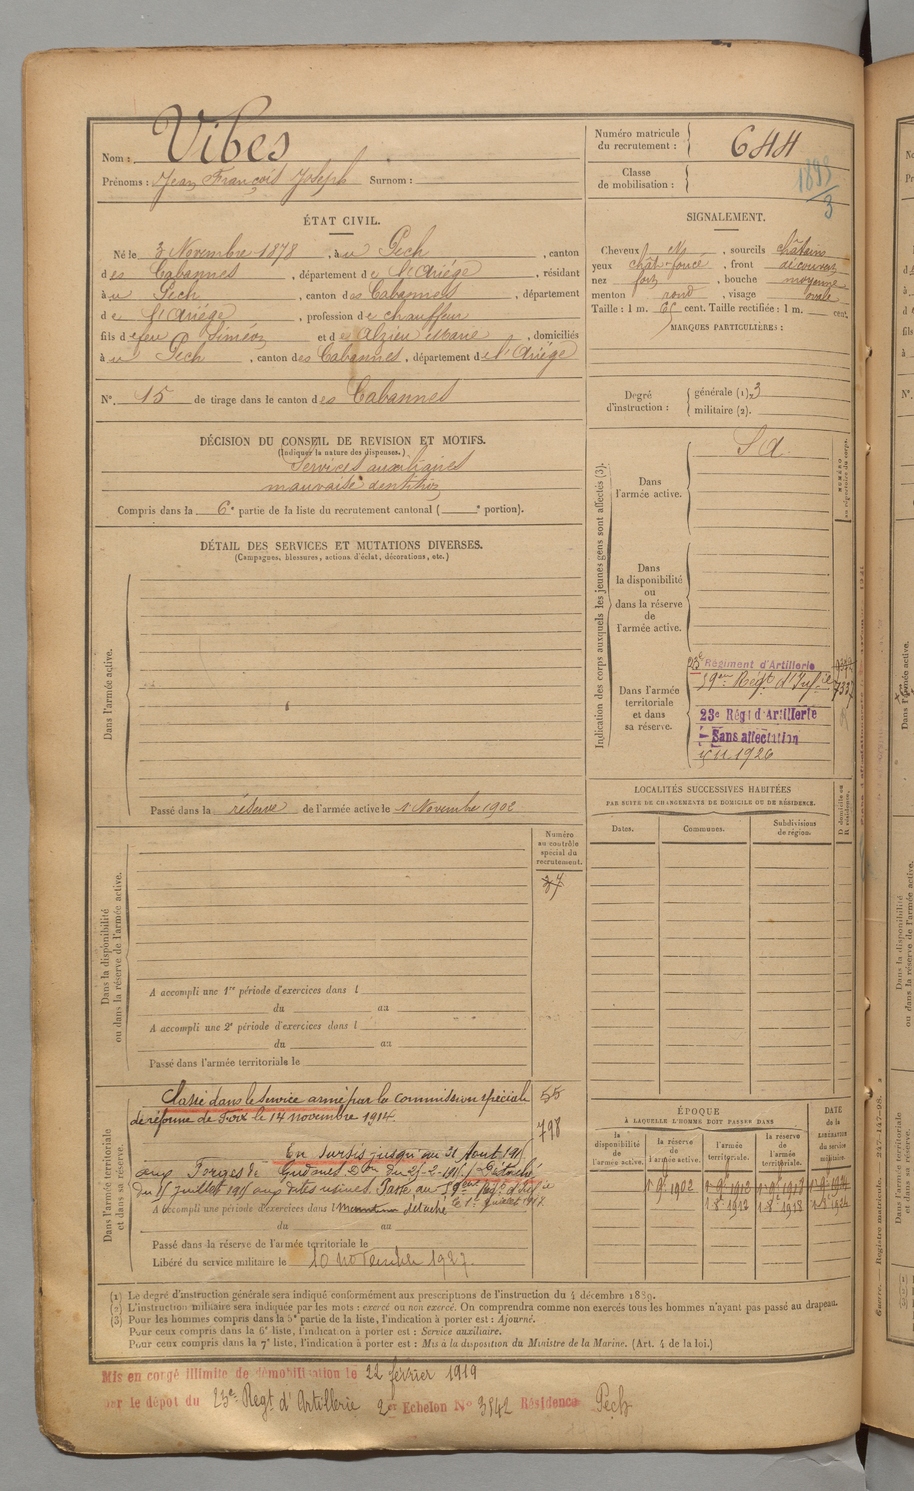 Nom : Vibes
Prénoms : Jean François Joseph Surnom :
Numéro matricule
du recrutement : 644
Classe
de mobilisation : 1893/3
ÉTAT CIVIL.
Né le 3 Novembre 1878, à u Pech, canton
des Cabannes, département de l'Ariége, résidant
à u Pech, canton des Cabannes, département
de l'Ariége, profession de chauffeur
fils de feu Siméon et des Alzieu Marie, domiciliés
à u Pech, canton des Cabannes, département de l'Ariége
N° 15 de tirage dans le canton des Cabannes
SIGNALEMENT.
Cheveux, sourcils châtains
yeux chât-foncé, front découvert
nez fort, bouche moyenne
menton rond, visage ovale
Taille : 1 m. 65 cent. Taille rectifiée : 1 m. cent.
MARQUES PARTICULIÈRES :
Degré
d'instruction :
générale (1). 3
militaire (2).
DÉCISION DU CONSEIL DE REVISION ET MOTIFS.
(Indiquer la nature des dispenses.)
Services auxiliaires
mauvaise dentition
Compris dans la 6e partie de la liste du recrutement cantonal (e portion).
DÉTAIL DES SERVICES ET MUTATIONS DIVERSES.
(Campagnes, blessures, actions d'éclat, décorations, etc.)
Dans l'armée active.
Passé dans la réserve de l'armée active le 1 Novembre 1902
Indication des corps auxquels les jeunes gens sont affectés (3).
Dans
l'armée active.
S A
Dans
la disponibilité
ou
dans la réserve
de
l'armée active.
Dans l'armée
territoriale
et dans
sa réserve.
23e Régiment d'Artillerie
59em Regt d'Infie
23e Régt d'Artillerie
Sans affectation
1926
Dans la disponibilité
ou dans la réserve de l'armée active.
Numéro
au contrôle
spécial du
recrutement.
A accompli une 1re période d'exercices dans l
du au
A accompli une 2e période d'exercices dans l
du au
Passé dans l'armée territoriale le
LOCALITÉS SUCCESSIVES HABITÉES
PAR SUITE DE CHANGEMENTS DE DOMICILE OU DE RÉSIDENCE.
Dates. Communes. Subdivisions
de région.
D. domicile ou
R. résidence.
Dans l'armée territoriale
et dans sa réserve.
Classé dans le service armé par la commission spéciale 55
de réforme de Foix le 14 novembre 1914. 798
En sursis jusqu'au 31 Aout 1915
aux Forges de Gudanes Don du 25-2-1915 Détaché
du 15 juillet 1915 aux dites usines Passé au 59eme Regt d'Infie
A accompli une période d'exercices dans l détaché le 1er Juillet 1917.
du au
Passé dans la réserve de l'armée territoriale le
Libéré du service militaire le 10 novembre 1927.
ÉPOQUE
À LAQUELLE L'HOMME DOIT PASSER DANS
DATE
de la
LIBÉRATION
du service
militaire.
la
disponibilité
de
l'armée active.
la réserve
de
l'armée active.
l'armée
territoriale.
la réserve
de
l'armée
territoriale.
1 9e 1902 1 9e 1912
(1) Le degré d'instruction générale sera indiqué conformément aux prescriptions de l'instruction du 4 décembre 1889.
(2) L'instruction militaire sera indiquée par les mots : exercé ou non exercé. On comprendra comme non exercés tous les hommes n'ayant pas passé au drapeau.
(3) Pour les hommes compris dans la 5e partie de la liste, l'indication à porter est : Ajourné.
Pour ceux compris dans la 6e liste, l'indication à porter est : Service auxiliaire.
Pour ceux compris dans la 7e liste, l'indication à porter est : Mis à la disposition du Ministre de la Marine. (Art. 4 de la loi.)
Mis en congé illimité de démobilisation le 22 février 1919
par le dépot du 23e Regt d'Artillerie 2e Echelon N° 3542 Résidence Pech